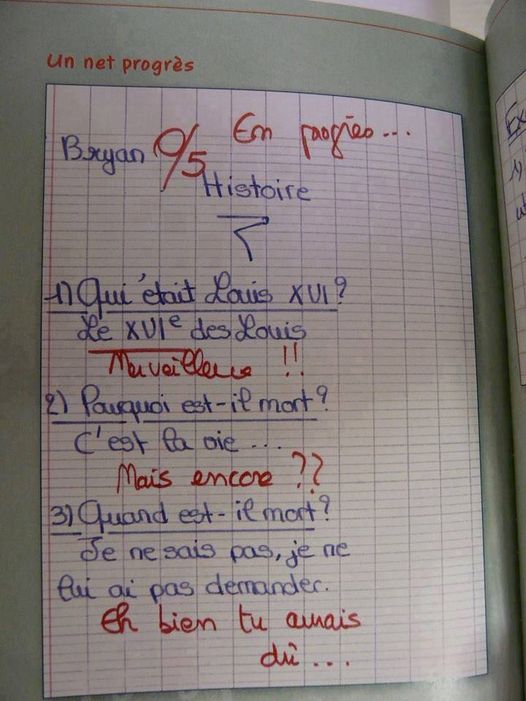 Un net progrès
Bryan 0/5 En progrès...
Histoire
1) Qui était Louis XVI?
Le XVIe des Louis
Merveilleux !!
2) Pourquoi est-il mort?
C'est la vie ...
Mais encore ??
3) Quand est-il mort?
Je ne sais pas, je ne
lui ai pas demander.
Eh bien tu aurais
dû ...
Ex
1)